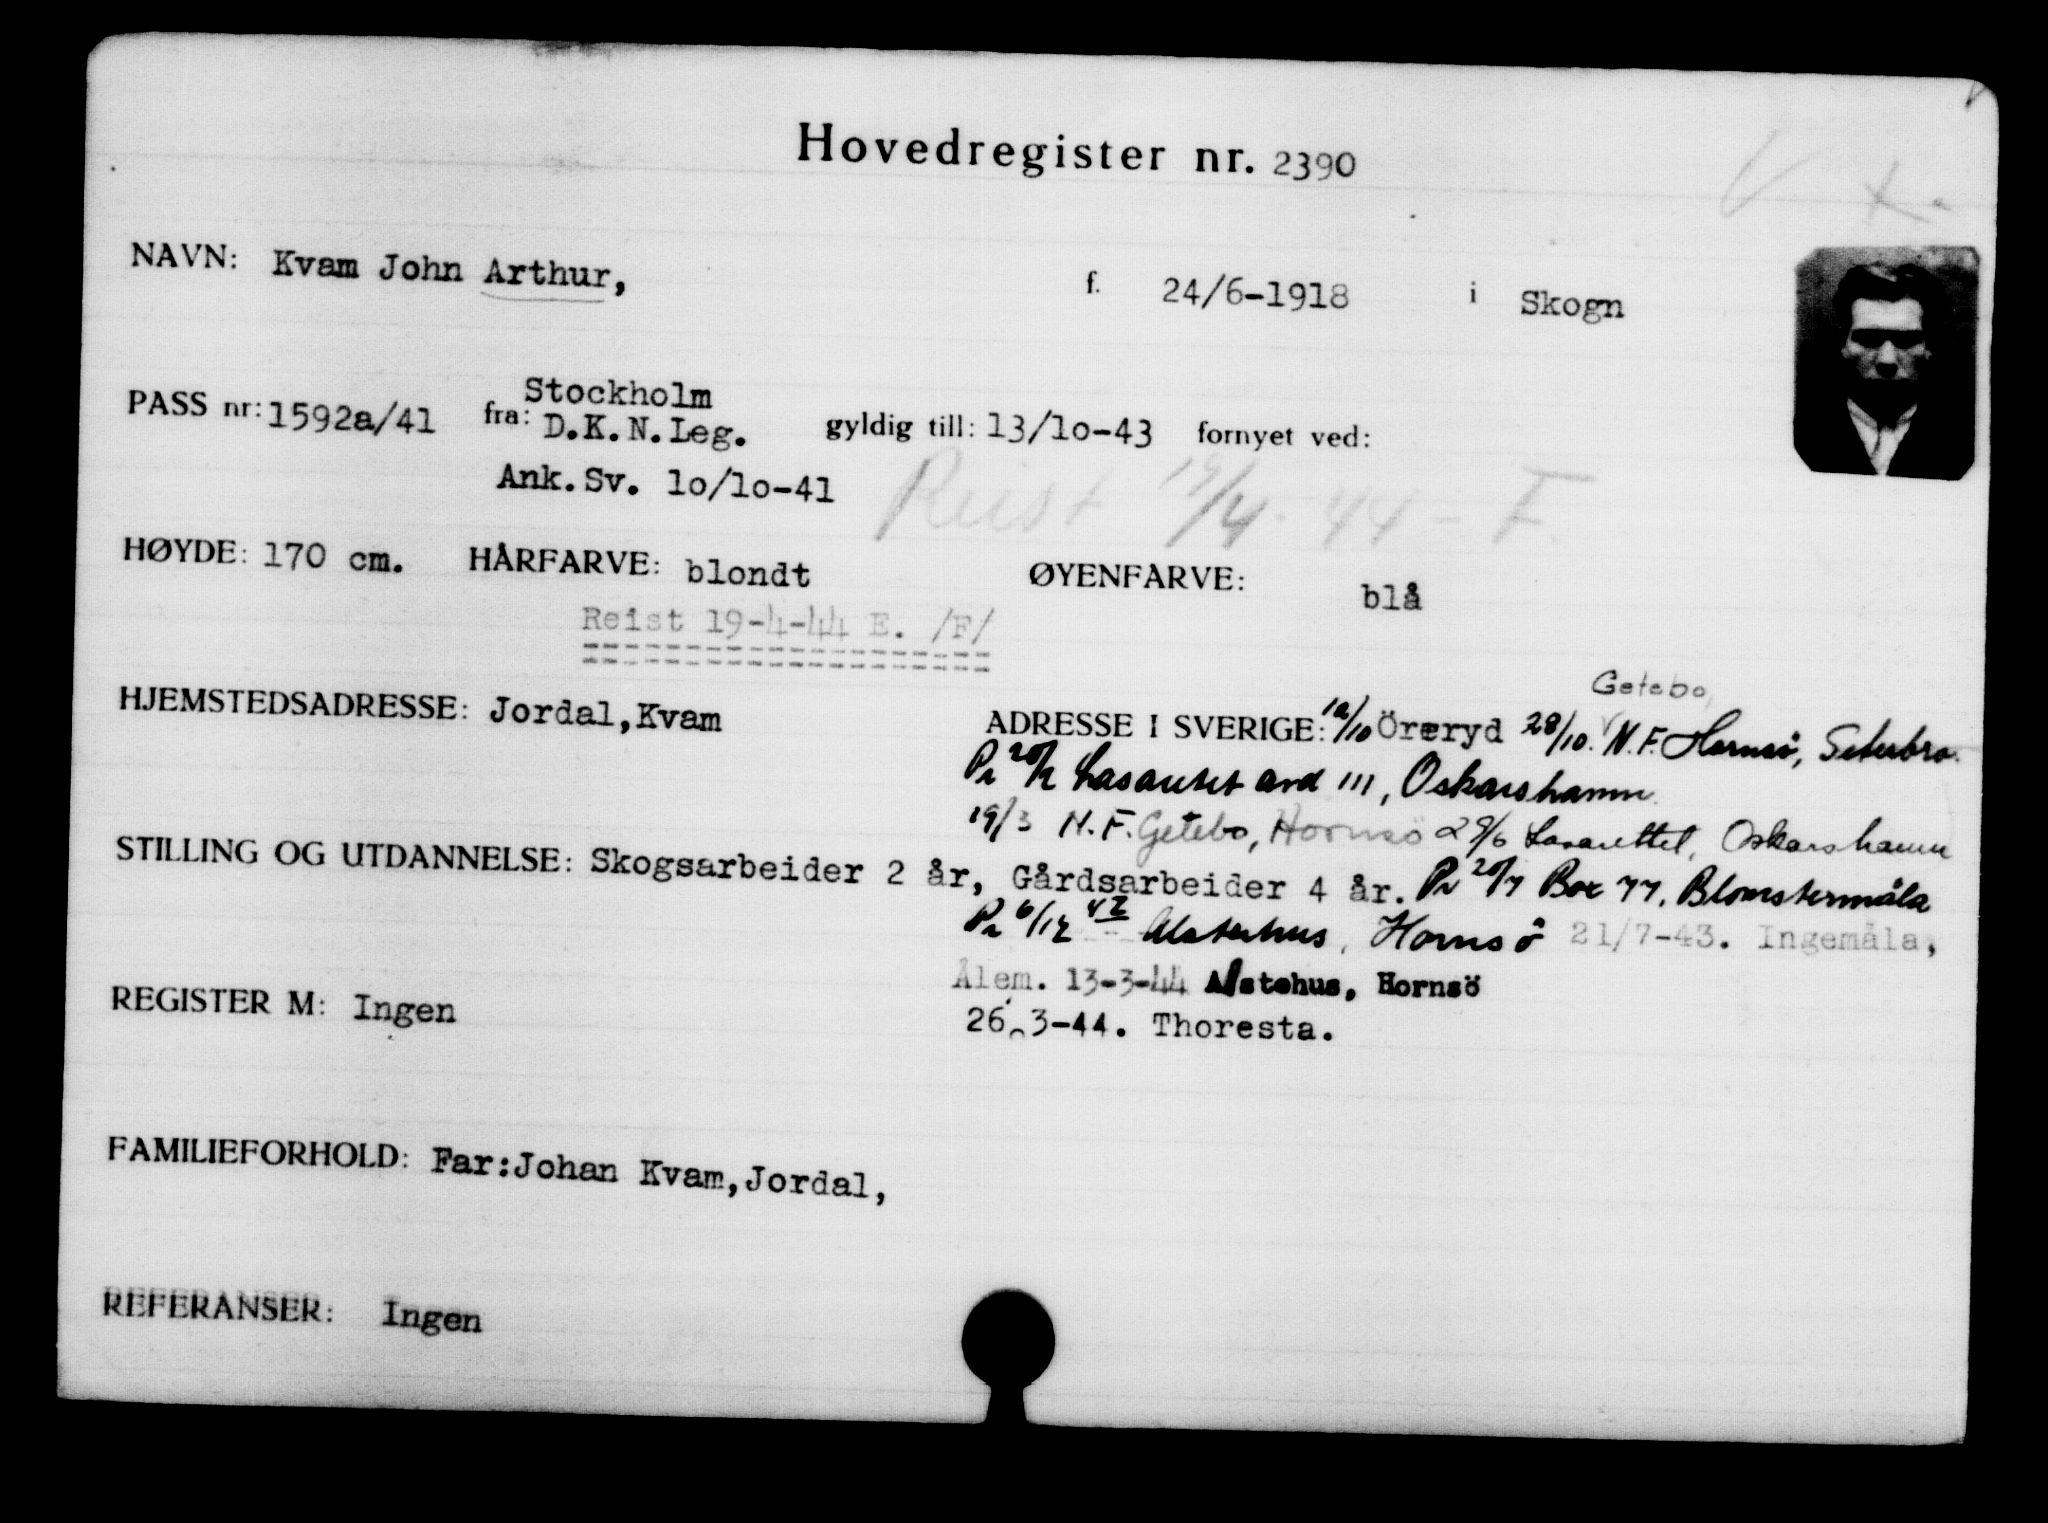 Hovedregister nr. 2390
NAVN: Kvam John Arthur, f. 24/6-1918 i Skogn
Stockholm
PASS nr: 1592a/41 fra: D.K.N.Leg. gyldig till: 13/10-43 fornyet ved:
Ank.Sv. 10/10-41
Reist 19/4-44 - F.
HØYDE: 170 cm. HÅRFARVE: blondt ØYENFARVE: blå
Reist 19-4-44 E. /F/
HJEMSTEDSADRESSE: Jordal,Kvam
Getebo,
ADRESSE I SVERIGE: 10/10 Öreryd 28/10. N.F. Hornsö,
Pr 20/2 Lasarettet avd III, Oskarshamn.
19/3 N.F. Getebo, Hornsö 29/6 Lasarettet, Oskarshamn
STILLING OG UTDANNELSE: Skogsarbeider 2 år, Gårdsarbeider 4 år. Pr 20/7 Box 77, Blomstermåla
Pr 6/12 42 Alsterhus, Hornsö 21/7-43. Ingemåla,
Ålem. 13-3-44 Alstehus, Hornsö
26.3-44. Thoresta.
REGISTER M: Ingen
FAMILIEFORHOLD: Far:Johan Kvam,Jordal,
REFERANSER: Ingen